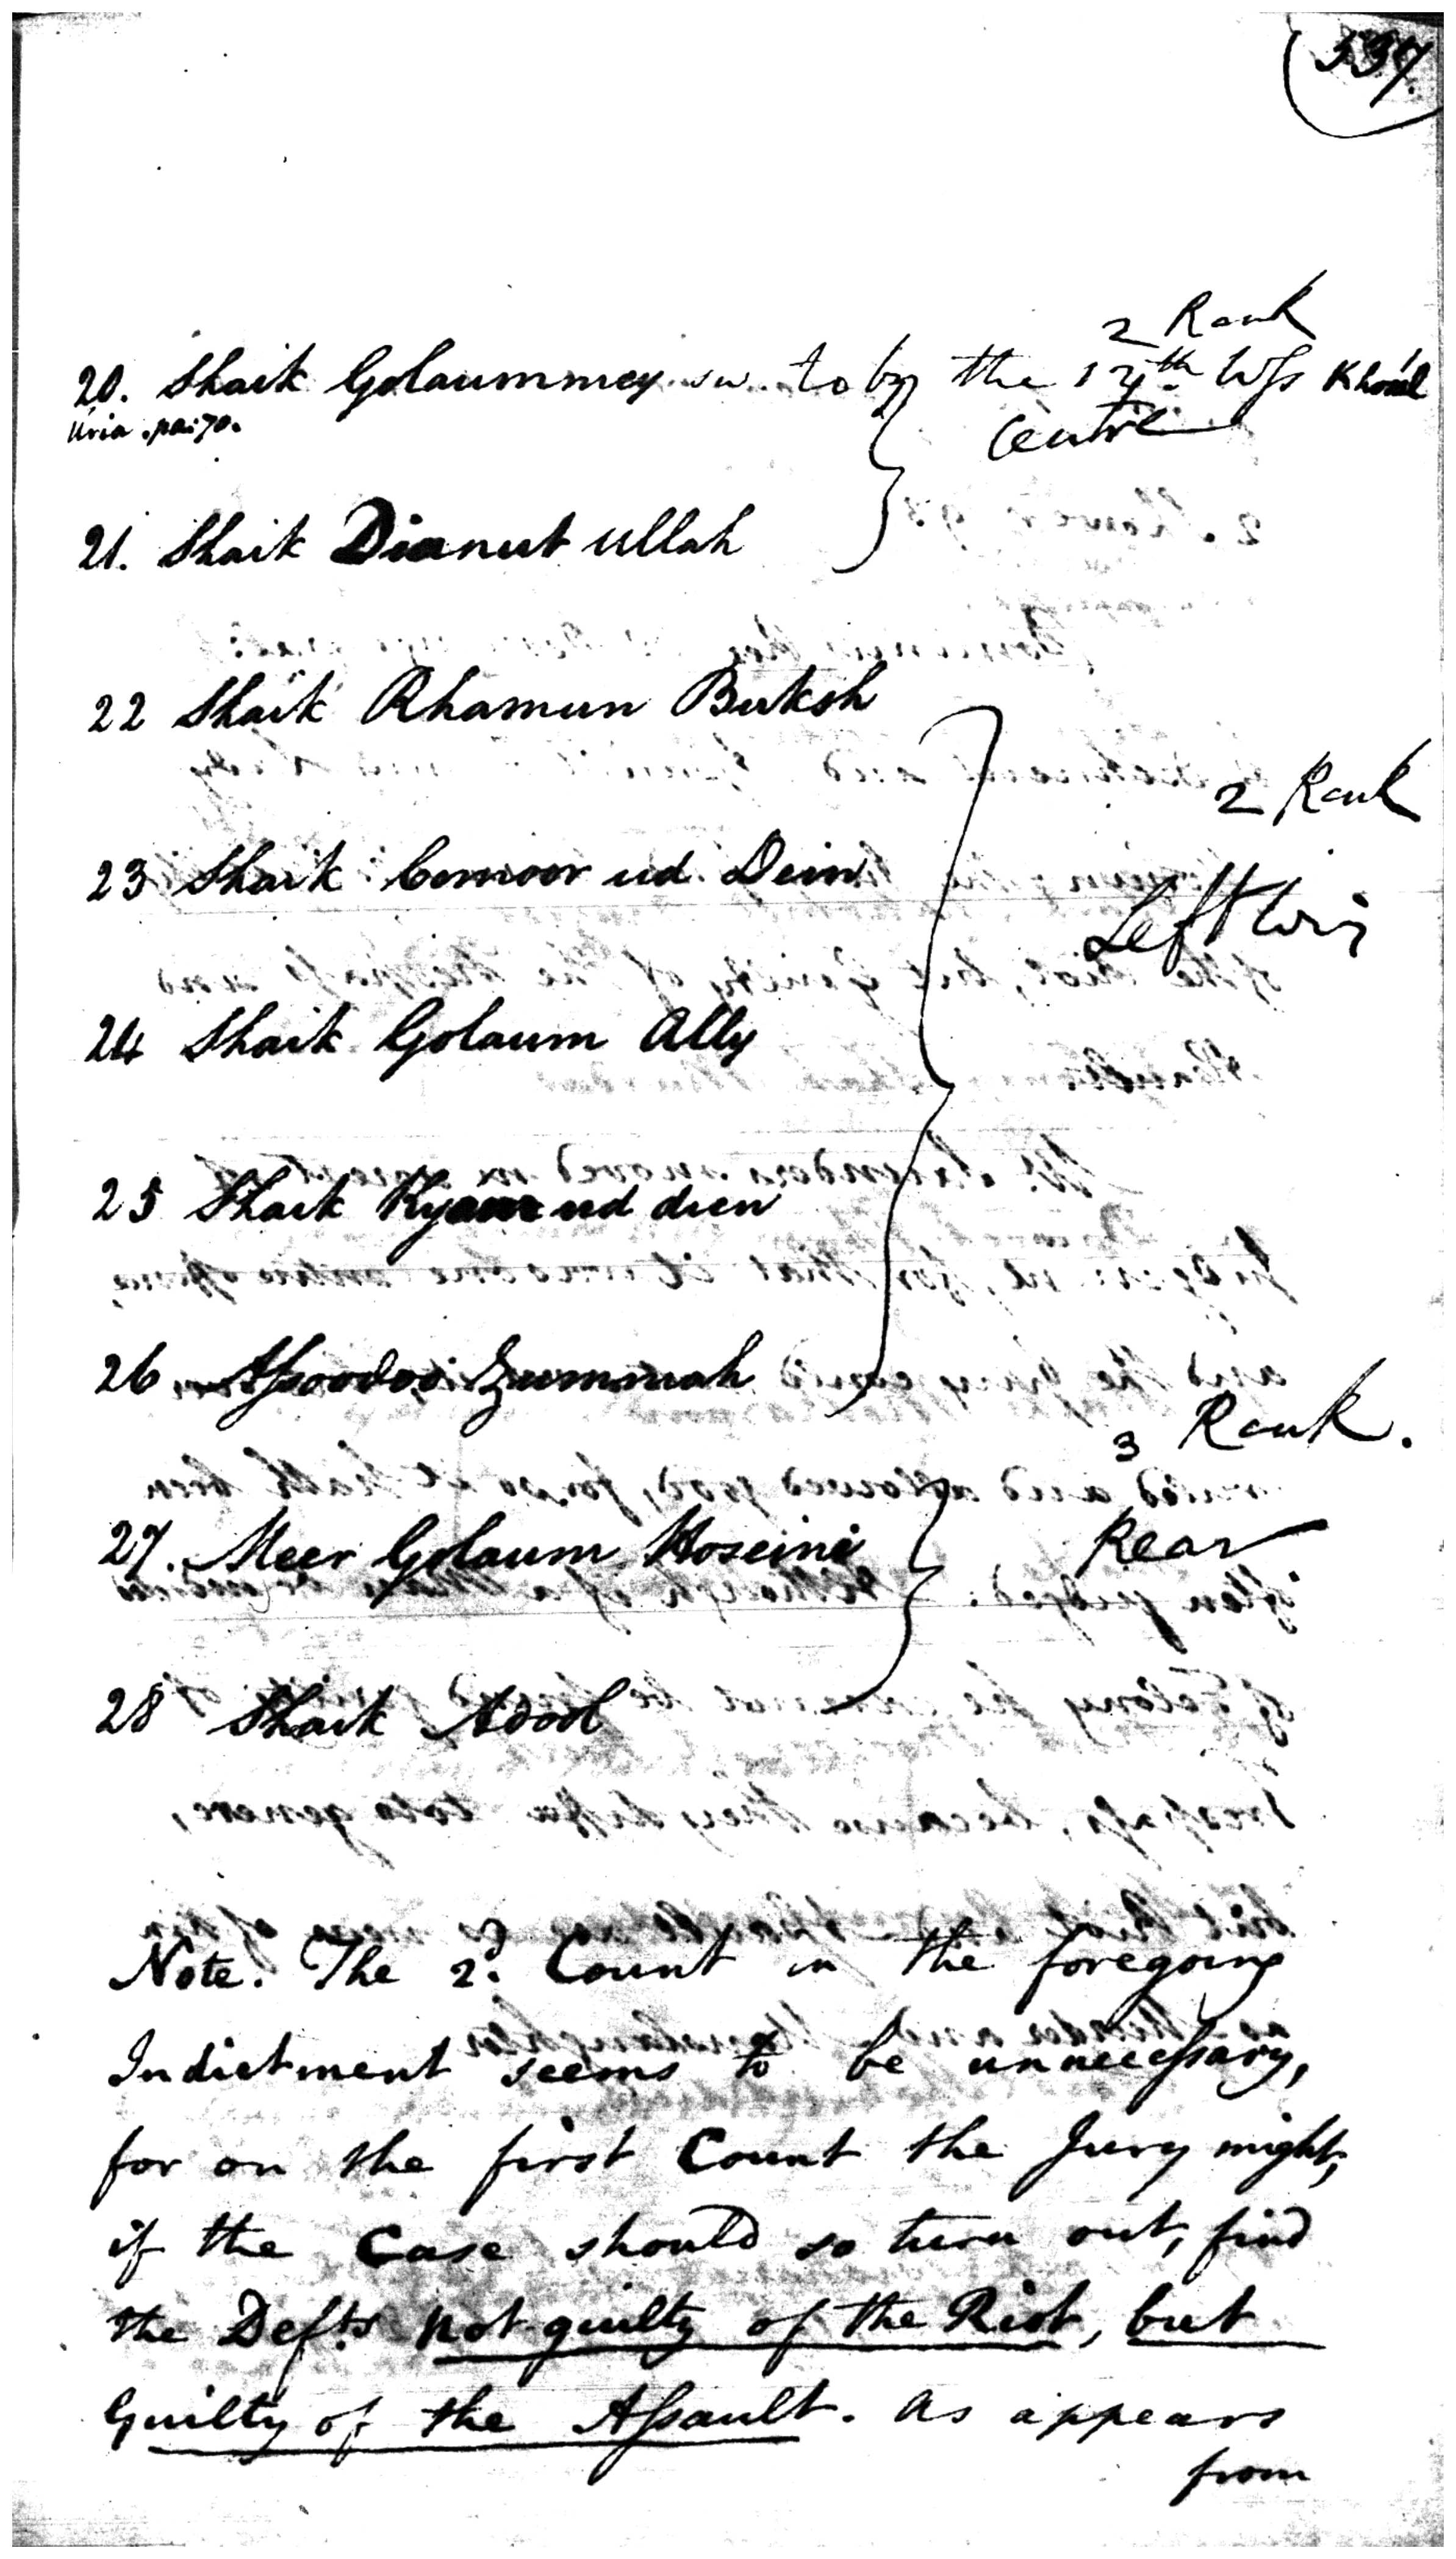 537
2 Rank
20. Shaik Golaummey sw. to by the 17th Wss Khoial
Uria . pa: 70.
Centre
21. Shaik Dianut ullah
22 Shaik Rhamun Buksh
2 Rank
23 Shaik Comoor ud Dein
Left Win
24 Shaik Golaum Ally
25 Shaik Kyam ud dien
26 Assoodoo Zummah
3 Rank.
27. Meer Golaum Hoseini
Rear
28 Shaik Adool
Note. The 2d. Count in the foregoing
Indictment seems to be unnecessary,
for on the first Count the Jury might,
if the Case should so turn out, find
the Defts. not guilty of the Riot, but
Guilty of the Assault. As appears
from